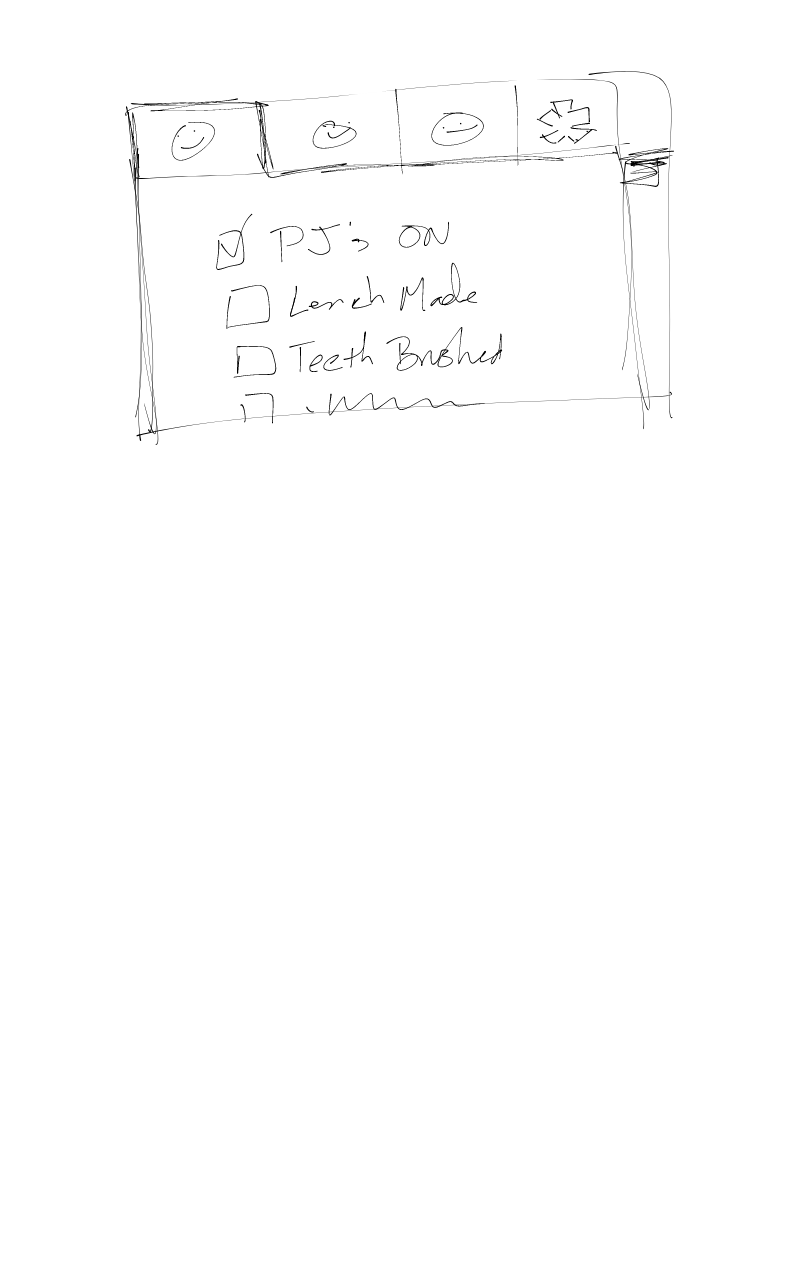 PJ's ON
Lunch Made
Teeth Brushed